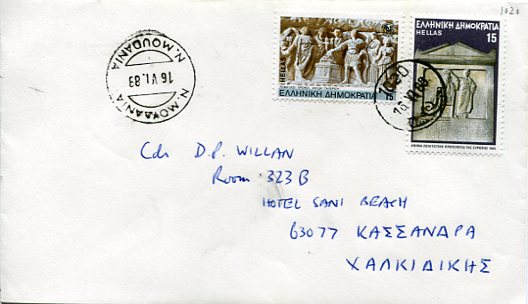 1020
ΕΛΛΗΝΙΚΗ ΔΗΜΟΚΡΑΤΙΑ
HELLAS 15
HELLAS
ΕΛΛΗΝΙΚΗ ΔΗΜΟΚΡΑΤΙΑ 15
Ν. ΜΟΥΔΑΝΙΑ
16 VI. 83
N. MOUDANIA
Cdr D.P. WILLAN
Room 323 B
HOTEL SANI BEACH
63077 ΚΑΣΣΑΝΔΡΑ
ΧΑΛΚΙΔΙΚΗΣ